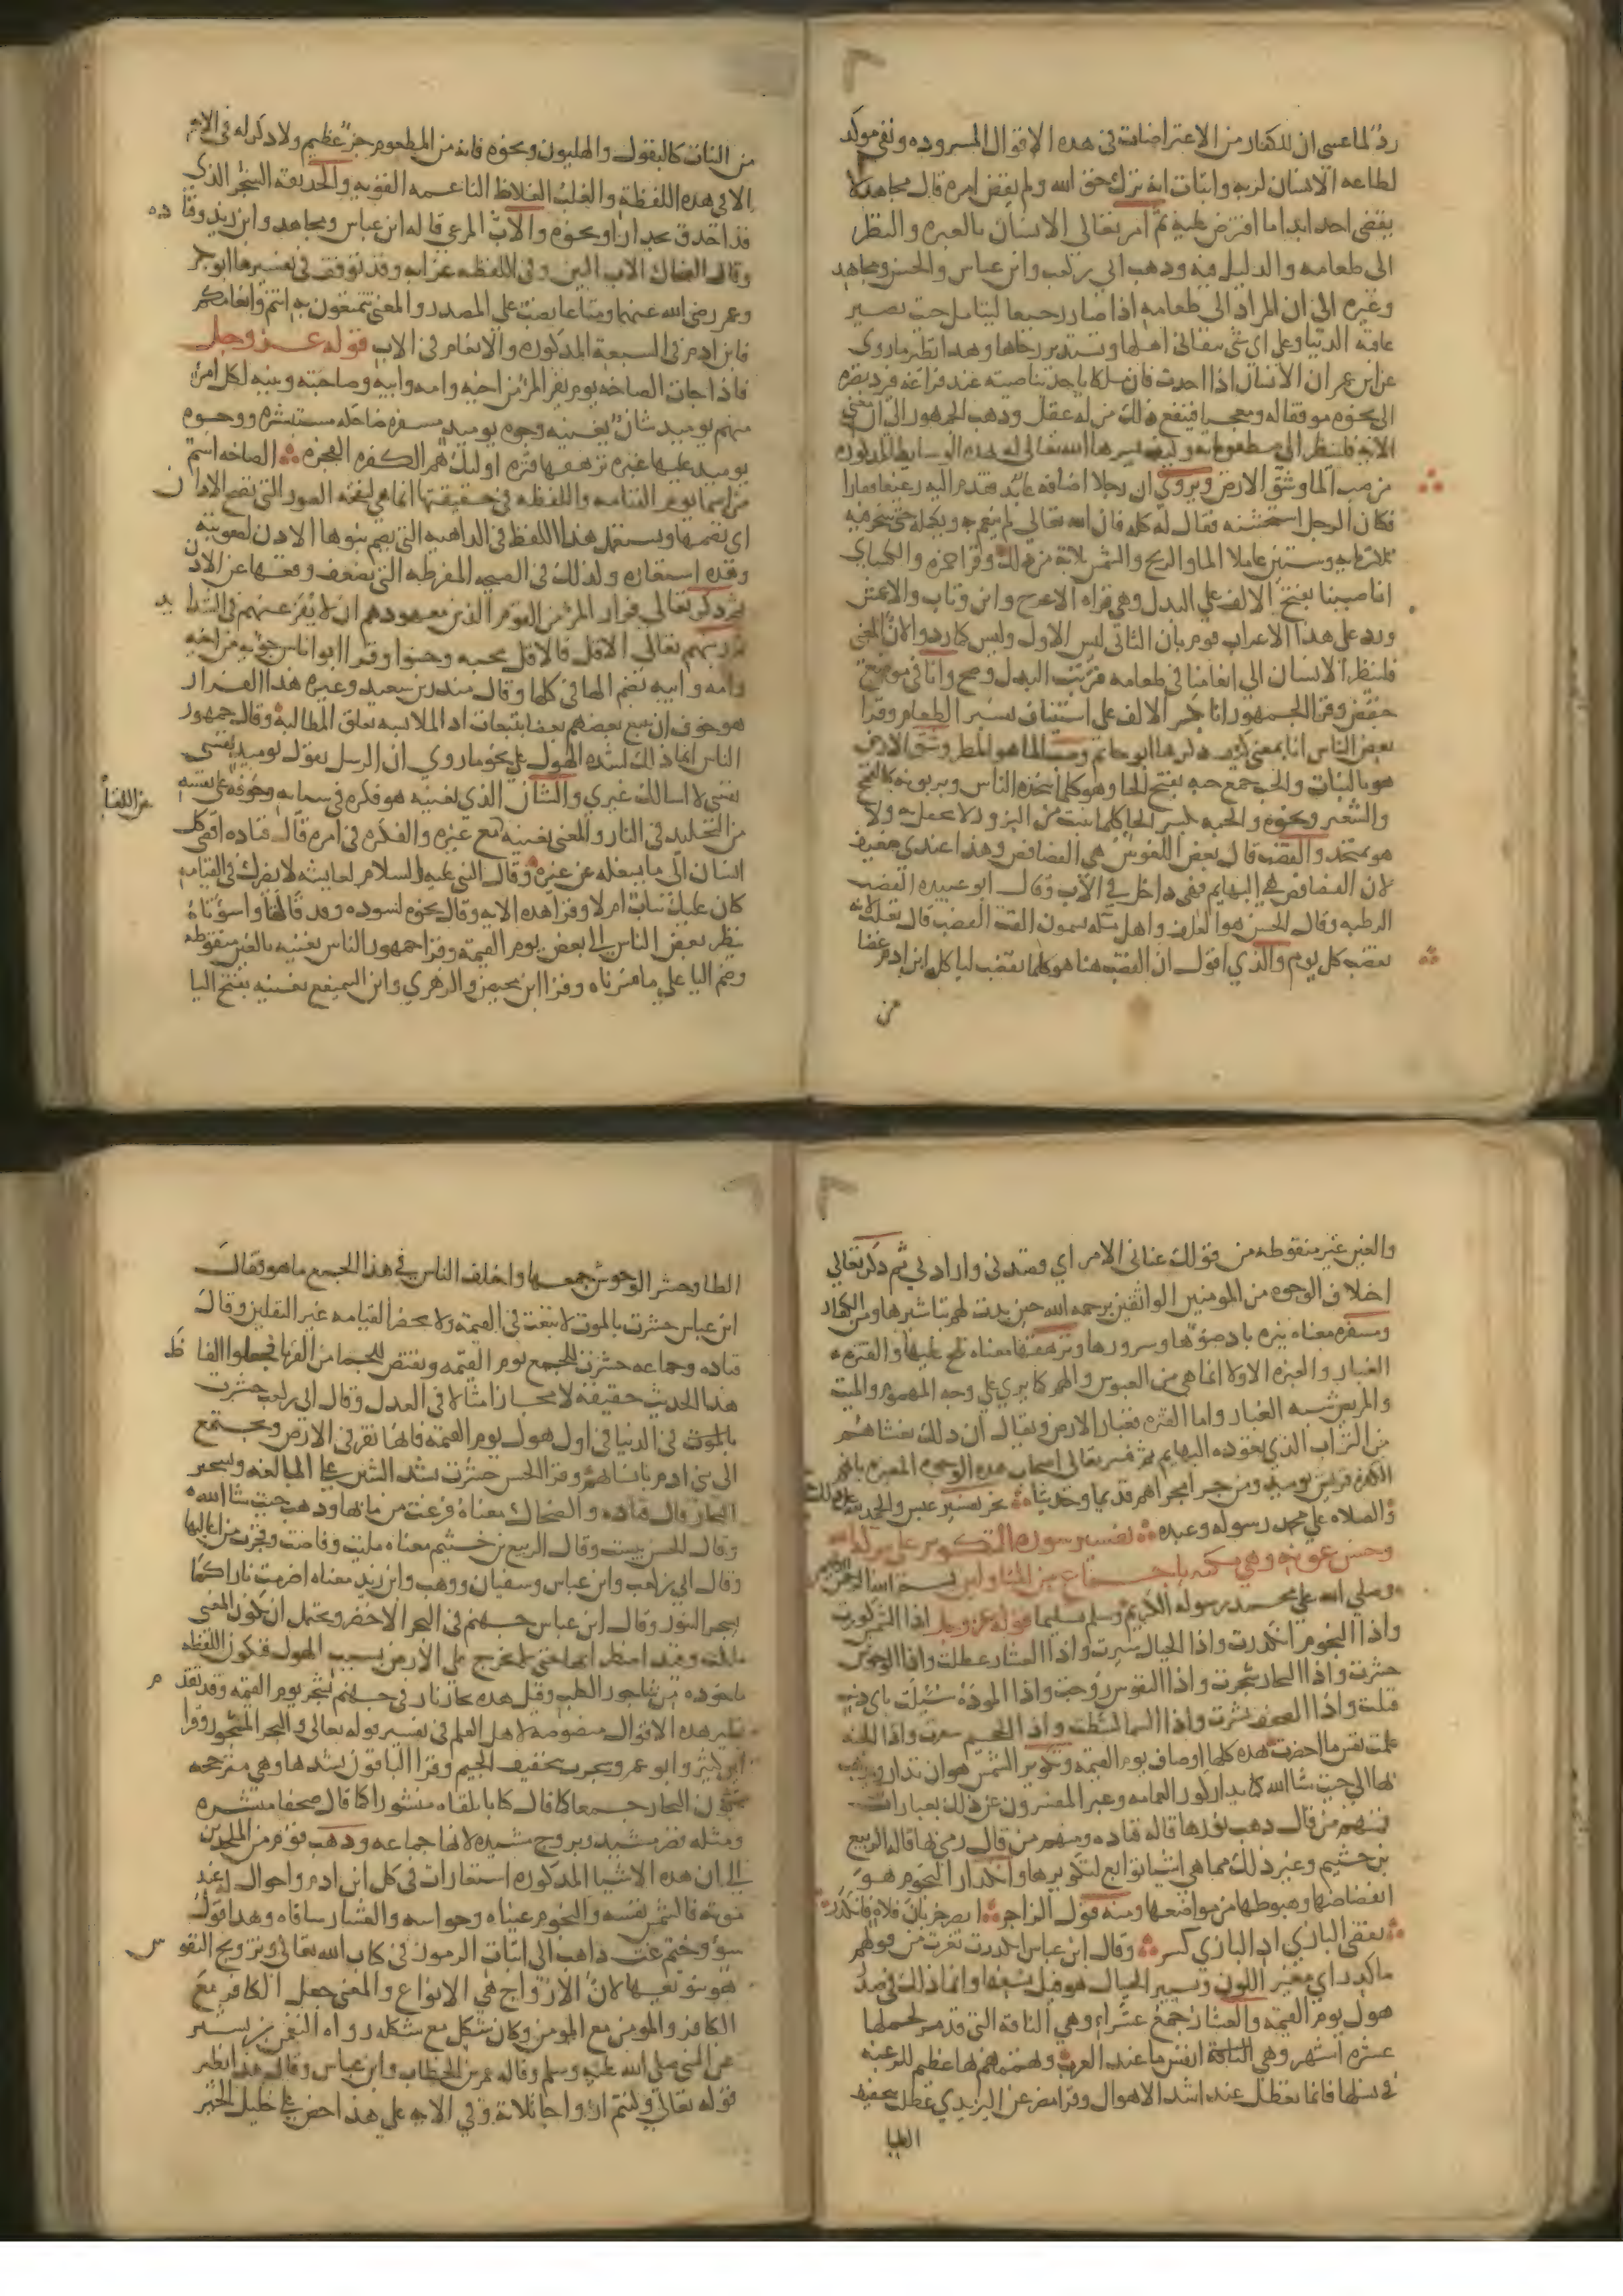 رد لما عسى ان للكفار من الاعتراضات فى هذه الاقوال المسروده ونفى موكد
لطاعه الانسان لربه واثبات انه ترك حق الله ولم يقض امره قال مجاهد لا
يقضى احد ابدا ما افترض عليه ثم امر تعالى الانسان بالعبره والنظر
الى طعامه والدليل فيه وذهب ابي بن كعب وابن عباس والحسن ومجاهد
وغيره الى ان المراد الى طعامه اذا صار رجيعا ليتامل حيث تصير
عاقبه الدنيا وعلى اي شي يتفانى اهلها وتستدير رحاها وهذا نظير ماروى
عن ابن عمر ان الانسان اذا احدث فان ملكا ياخذ بناصيته عند فراغه فيرد بصره
الى نحوه موقفا له ومعجبا فينفع ذلك من له عقل وذهب الجمهور الى ان معنى
الايه فلينظر الى مطعوماته وكيف يسرها الله تعالى له بهذه الوسايط المذكوره
من صب الما وشق الارض ويروى ان رجلا اضافه عابد فقدم اليه رغيفا قفارا
فكان الرجل استخشنه فقال له كله فان الله تعالى لم ينعم به ويكمله حتى سخر فيه
ثلاث مايه وستين عاملا الما والريح والشمس ثلاثة من ذلك وقرا حمزه والكساي
انا صببنا بفتح الالف على البدل وهى قراه الاعرج وابن وثاب والاعمش
ورد على هذا الاعراب قوم بان الثانى ليس الاول وليس كما ردوا لان المعنى
فلينظر الانسان الى انعامنا فى طعامه فترتب البدل وصح وانا فى موضع
خفض وقرا الجمهور انا بكسر الالف على استئناف تفسير الطعام وقرا
بعض الناس انا بمعنى كيف ذكرها ابو حاتم وصب الما هو المطر وشق الارض
هو بالنبات والحب جمع حبه بفتح الحا وهو كل ما يتخذه الناس ويربونه كالقمح
والشعير ونحوه والحبه بكسر الحا كل ما ينبت من البزور لا يحفل به ولا
هو بمتخذ والقضب قال بعض اللغويين هي الفصافص وهذا عندي ضعيف
لان الفصافص هي للبهايم فهى داخل في الاب وقال ابو عبيده القضب
الرطبه وقال الحسن هو العلف واهل مكه يسمون القت القضب قال ثعلب لانه
يقضب كل يوم والذي اقول ان القضب هنا هو كلما يقضب لياكله ابن ادم غضا
من
من النبات كالبقول والهليون ونحوه فانه من المطعوم جزء عظيم ولا ذكر له فى الايه
الا فى هذه اللفظة والغلب الغلاظ الناعمه القويه والحديقه الشجر الذى
قد احدق بجدار او نحوه والاب المرعى قاله ابن عباس ومجاهد وابن زيد وقتا ده
وقال الضحاك الاب التبن وفى اللفظه غرابه وقد توقف فى تفسيرها ابو بكر
وعمر رضى الله عنهما ومتاعا نصب على المصدر والمعنى تتمتعون به انتم وانعامكم
فابن ادم فى السبعة المذكوره والانعام فى الاب قوله عز وجل
فاذا جات الصاخه يوم يفر المرء من اخيه وامه وابيه وصاحبته وبنيه لكل امرئ
منهم يوميذ شان يغنيه وجوه يوميذ مسفره ضاحكه مستبشره ووجوه
يوميذ عليها غبره ترهقها قتره اوليك هم الكفره الفجره الصاخه اسم
من اسما يوم القيامه واللفظه فى حقيقتها انما هى لنفخه الصور التى تصخ الاذان
اى تصمها ويستعمل هذا اللفظ فى الداهيه التى يصم نبوها الاذن لصعوبته
وهذه استعاره وكذلك فى الصيحه المفرطه التى يصعب وقعها عن الاذن
ثم ذكر تعالى فرار المرء من القوم الذين معهودهم ان لا يفر عنهم فى الشدا يد
ثم رتبهم تعالى الاقل فالاقل محبه وحنوا وقرا ابو اناس جويه من اخيه
وامه وابيه بضم الها فى كلها وقال منذر بن سعيد وغيره هذا الفرار
هو خوف ان يتبع بعضهم بعضا بتبعات اذ الملابسه تعلق المطالبة وقال جمهور
الناس انما ذلك لشده الهول على نحو ماروي ان الرسل يقول يوميذ نفسى
نفسى لا اسالك غيري والشان الذي يغنيه هو فكره فى سياته وخوفه على نفسه
من التخليد فى النار والمعنى يغنيه عن اللقاء مع غيره والفكره فى امره قال قتاده افضى كل
انسان الى ما يشغله عن غيره وقال النبى عليه السلام لعايشه لا يضرك فى القيامه
كان عليك ثياب ام لا وقرا هذه الايه وقال نحوه لسوده وقد قالتا واسوءتاه
ينظر بعض الناس الى بعض يوم القيمة وقرا جمهور الناس يغنيه بالغين منقوطه
وضم اليا على ما فسرناه وقرا ابن محيصن والزهري وابن السميفع يعنيه بفتح اليا
والعين غير منقوطه من قولك عنانى الامر اي قصدنى وارادنى ثم ذكر تعالى
اختلاف الوجوه من المومنين الواثقين برحمه الله حين بدت لهم تباشيرها ومن الكفار
ومسفره معناه نيره باد ضوؤها وسرورها وترهقها معناه تلح عليها والقتره
الغبار والغبره الاولى انما هى من العبوس والهم كما يرى على وجه المهموم والميت
والمريض شبه الغبار واما القتره فغبار الارض ويقال ان ذلك يغشاهم
من التراب الذي يعوده البهايم ثم فسر تعالى اصحاب هذه الوجوه المغبره بانهم
الكفره قريش يوميذ ومن جرى مجراهم قديما وحديثا نجز تفسير عبس والحمد لله على ذلك
والصلاه على محمد رسوله وعبده تفسير سوره التكوير على بركه الله
وحسن عونه وهي مكيه باجماع من المتاولين بسم الله الرحمن الرحيم
وصلى الله على محمد رسوله الكريم وسلم تسليما قوله عز وجل اذا الشمس كورت
واذا النجوم انكدرت واذا الجبال سيرت واذا العشار عطلت واذا الوحوش
حشرت واذا البحار سجرت واذا النفوس زوجت واذا الموودة سئلت باي ذنب
قتلت واذا الصحف نشرت واذا السما كشطت واذا الجحيم سعرت واذا الجنه
علمت نفس ما احضرت هذه كلها اوصاف يوم القيمه وتكوير الشمس هو ان تدار ويذهب
بها الى حيث شا الله كما يدار كور العمامه وعبر المفسرون عن ذلك بعبارات
فمنهم من قال ذهب نورها قاله قتاده ومنهم من قال رمى بها قاله الربيع
بن خثيم وغير ذلك مما هى اشيا توابع لتكويرها وانكدار النجوم هو
انقضاضها وهبوطها من مواضعها ومنه قول الراجز ابصر خربان فلاة فانكدر
تقضى البازي اذا البازي كسر وقال ابن عباس انكدرت تغيرت من قولهم
ما كدر اي متغير اللون وتسيير الجبال هو قبل نسفها وانما ذلك فى صدر
هول يوم القيمه والعشار جمع عشراء وهي الناقة التى قد مر لحملها
عشره اشهر وهى الناقة انفس ما عند العرب وتهممهم بها عظيم للرغبه
فى نسلها فانما تعطل عند اشد الاهوال وقرا مضر عن اليزيدي عطلت بتخفيف
الطا
الطا وحشر الوحوش جمعها واختلف الناس في هذا الجمع ما هو فقال
ابن عباس حشرت بالموت لا تبعث فى القيمة ولا يحضر القيامه غير الثقلين وقال
قتاده وجماعه حشرت للجمع يوم القيمه ويقتص للجما من القرنا فجعلوا الفا ظ
هذا الحديث حقيقه لا مجازا مثالا فى العدل وقال ابى بن كعب حشرت
بالموت فى الدنيا فى اول هول يوم القيمه فانها تفر فى الارض وتجتمع
الى بنى ادم تانسا بهم وقرا الحسن حشرت بشد الشين على المبالغه وتسجير
البحار قال قتاده والضحاك معناه فرغت من مائها وذهب حيث شا الله
وقال الحسن يبست وقال الربيع بن خثيم معناه مليت وفاضت وفجرت من اعاليها
وقال ابي بن كعب وابن عباس وسفيان ووهب وابن زيد معناه اضرمت نارا كما
يسجر التنور وقال ابن عباس جهنم فى البحر الاخضر ويحتمل ان يكون المعنى
ملكت وقيد اضطرابها حتى لا تخرج على الارض بسبب الهول فتكون اللفظه
ماخوذه من ساجور الكلب وقيل هذه مجاز نار فى جهنم تسجر يوم القيمه وقد تقد م
نظير هذه الاقوال منصوصه لاهل العلم فى تفسير قوله تعالى والبحر المسجور وقرا
ابن كثير وابو عمرو سجرت بتخفيف الجيم وقرا الباقون بشدها وهى مترجحه
بكون البحار جمعا كما قال كتابا يلقاه منشورا كما قال صحفا منشره
ومثله قصر مشيد وبروج مشيده لانها جماعه وذهب قوم من الملحدين
الى ان هذه الاشيا المذكوره استعارات فى كل ابن ادم واحواله عند
موته فالشمس نفسه والنجوم عيناه وحواسه والعشار ساقاه وهذا قول
سوؤ وخيم غث ذاهب الى اثبات الرموز فى كتاب الله تعالى وتزويج النفو س
هو تنويعها لان الازواج هي الانواع والمعنى جعل الكافر مع
الكافر والمومن مع المومن وكان شكل مع شكله رواه النعمن بن بشير
عن النبى صلى الله عليه وسلم وقاله عمر بن الخطاب وابن عباس وقال هذا نظير
قوله تعالى وكنتم ازواجا ثلاثة وفي الايه على هذا حض على خليل الخير